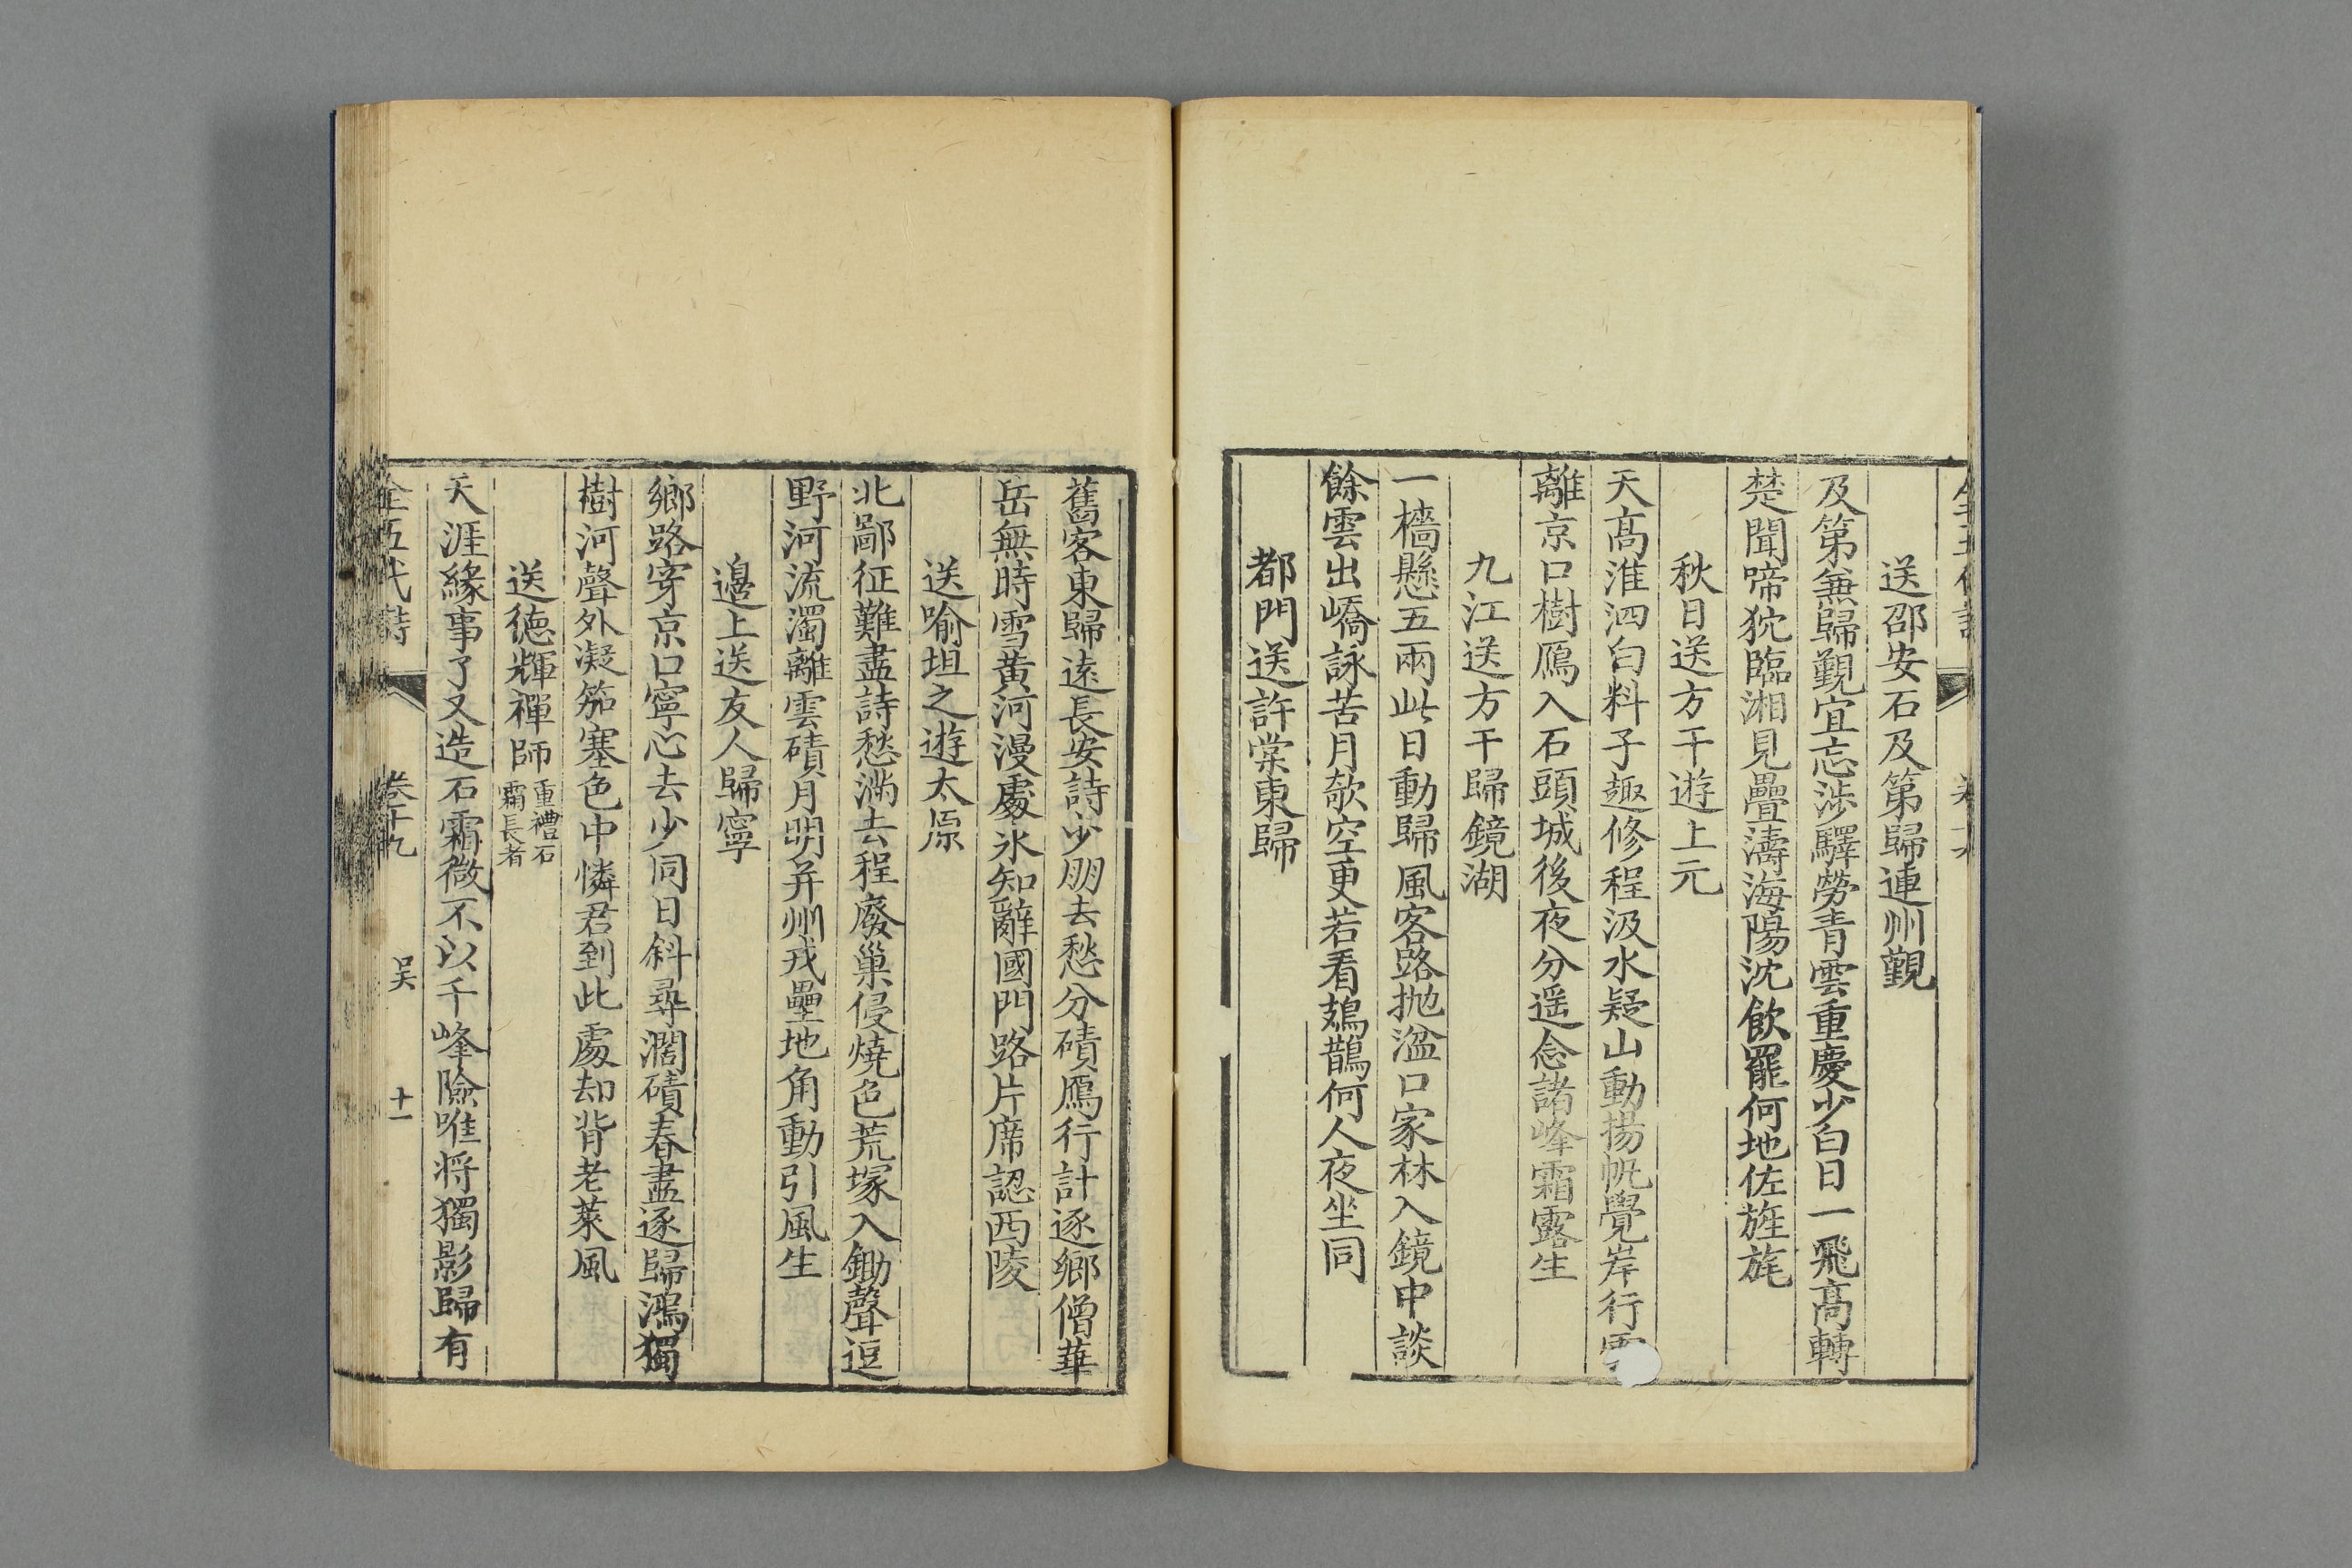 送邵安石及第歸連州覲
及第無歸覲宜忘涉驛勞青雲重慶少白日一飛高轉
楚聞啼狖臨湘見疊濤海陽沈飲罷何地佐旌旄
秋日送方干遊上元
天高淮泗白料子趣修程汲水疑山動揚帆覺岸行雲
離京口樹鴈入石頭城後夜分遥念諸峰霜露生
九江送方干歸鏡湖
一檣懸五兩此日動歸風客路抛湓口家林入鏡中談
餘雲出嶠詠苦月欹空更若看鵁鶄何人夜坐同
都門送許棠東歸
舊客東歸遠長安詩少朋去愁分磧鴈行計逐鄉僧華
岳無時雪黃河漫處氷知辭國門路片席認西陵
送喻坦之遊太原
北鄙征難盡詩愁滿去程廢巢侵燒色荒塚入鋤聲逗
野河流濁離雲磧月明并州戎壘地角動引風生
邊上送友人歸寧
鄉路穿京口寧心去少同日斜尋濶磧春盡逐歸鴻獨
樹河聲外凝笳塞色中憐君到此處却背老萊風
送德輝禪師重禮石霜長者
天涯緣事了又造石霜微不以千峰險唯将獨影歸有
全五代詩 卷十九 吴 十一